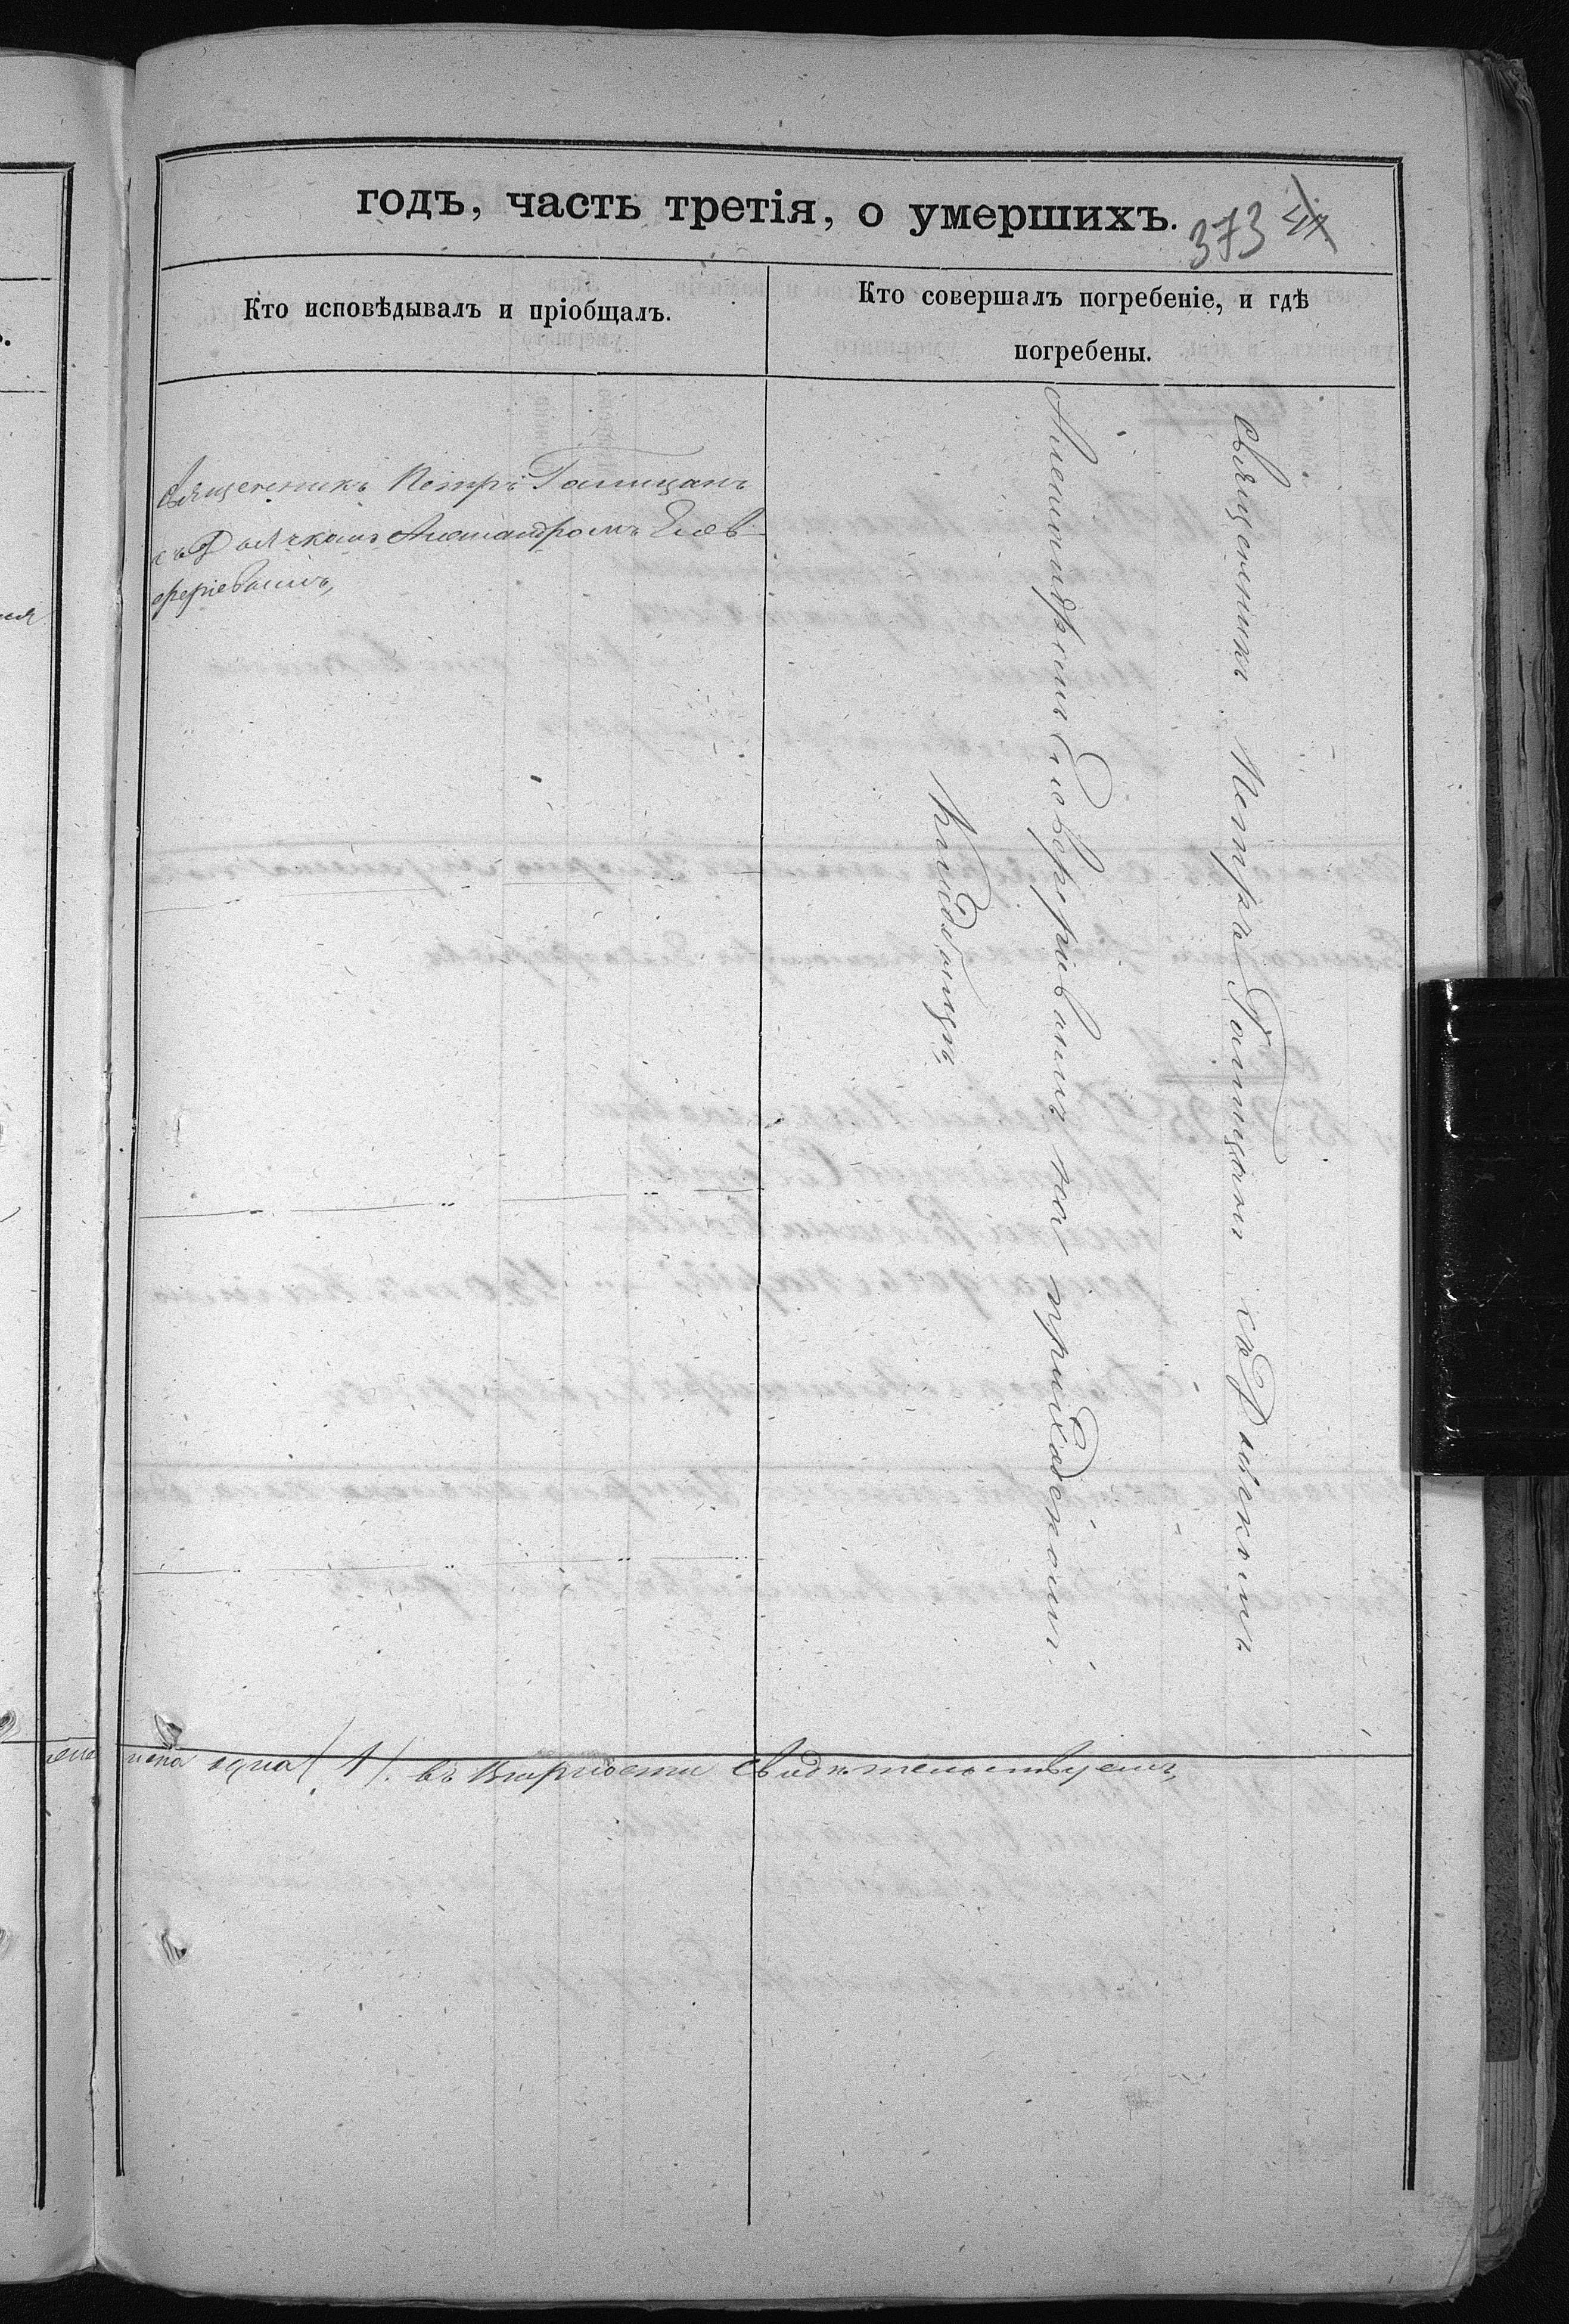 годъ, часть третія, о умершихъ.
373
Кто исповѣдывалъ и пріобщалъ.
Кто совершалъ погребеніе, и гдѣ
погребены.
Священникъ Петръ Галицанъ
съ Дьячкомъ Александромъ Елев-
феріевымъ,
Священникъ Петръ Галицанъ съ Дьячкомъ
Александромъ Елевферіевымъ на приходскомъ
Кладбищѣ,
одна (1). въ вѣрности свидѣтельствуемъ,